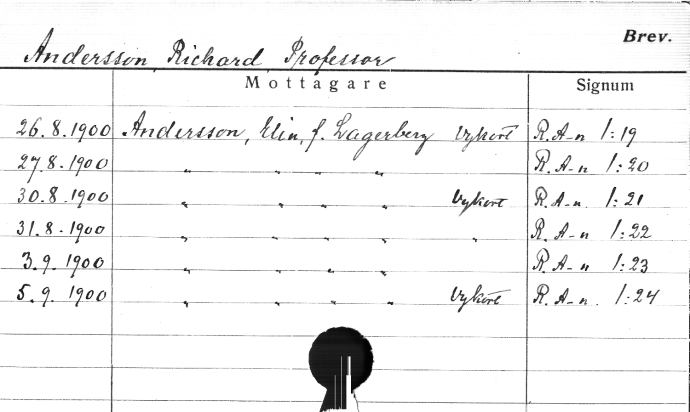 Brev.
Andersson, Richard Professor
Mottagare Signum
26.8.1900 Andersson, Elin, f. Lagerberg Vykort R. A-n 1:19
27.8.1900 " " " " R. A-n 1:20
30.8.1900 " " " " Vykort R. A-n. 1:21
31.8.1900 " " " " " R. A-n 1:22
3.9.1900 " " " " R. A-n 1:23
5.9.1900 " " " " Vykort R. A-n. 1:24